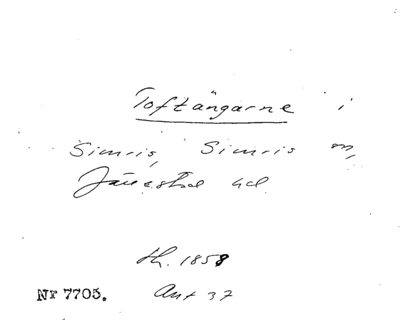 Toftängarne i
Simris, Simris sn,
Järrestad hd
th. 1858
Nr 7705. Ant 37